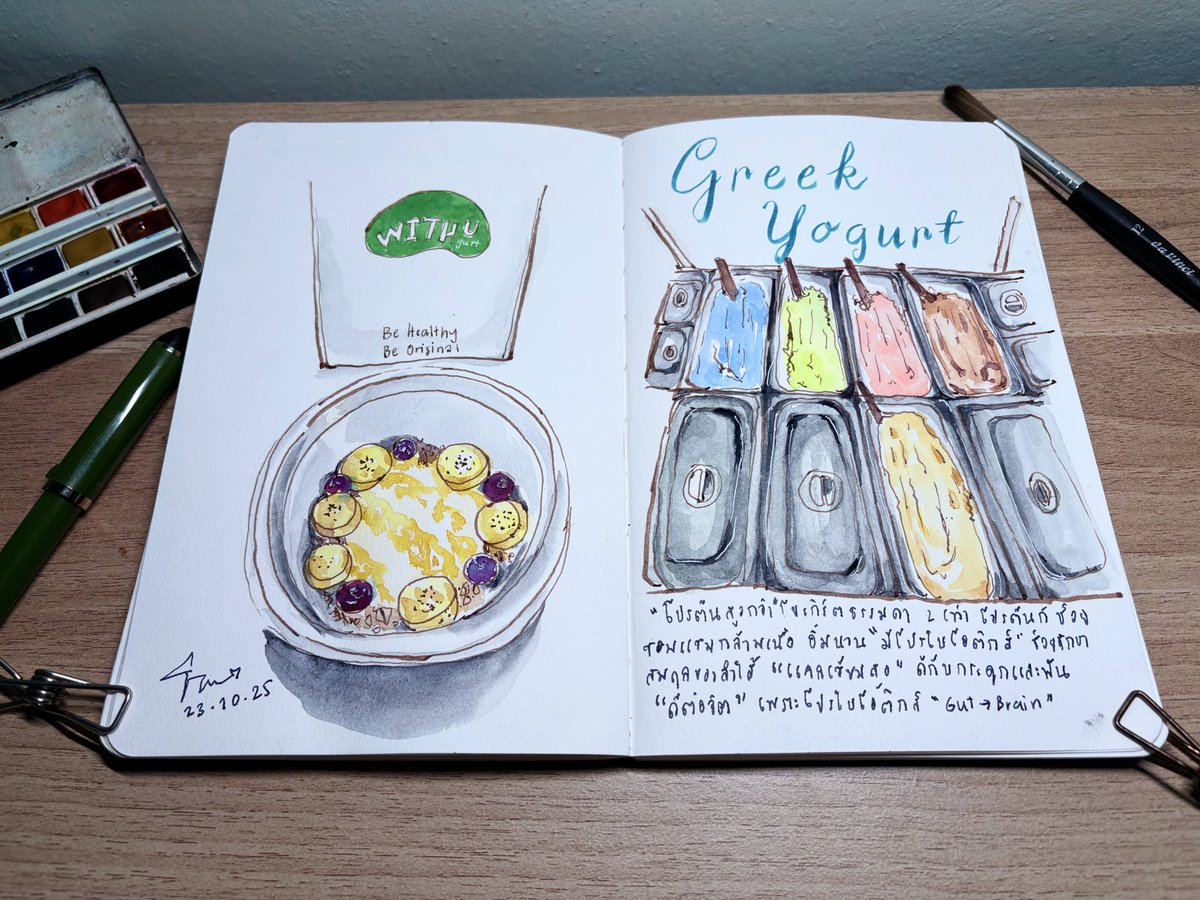 WITHU
gurt
Be Healthy
Be Original
23.10.25
Greek
Yogurt
"โปรตีนสูงกว่า" โยเกิร์ตธรรมดา 2 เท่า โปรตีนที่ช่วย
ซ่อมแซมกล้ามเนื้อ อิ่มนาน "มีโปรไบโอติกส์" ช่วยรักษา
สมดุลของลำไส้ "แคลเซียมสูง" ดีกับกระดูกและฟัน
"ดีต่อจิต" เพราะโปรไบโอติกส์ "Gut → Brain"
12 da Vinci